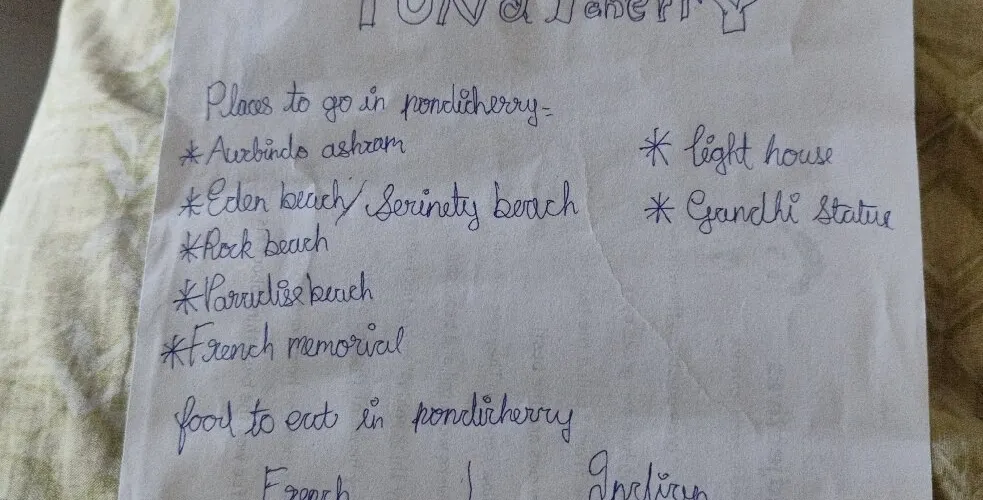 PONdIcherry
Places to go in pondicherry-
* Aurbindo ashram
* Eden beach/ Serinety beach
* Rock beach
* Parradise beach
* French memorial
* light house
* Gandhi Statue
food to eat in pondicherry
French | Indian